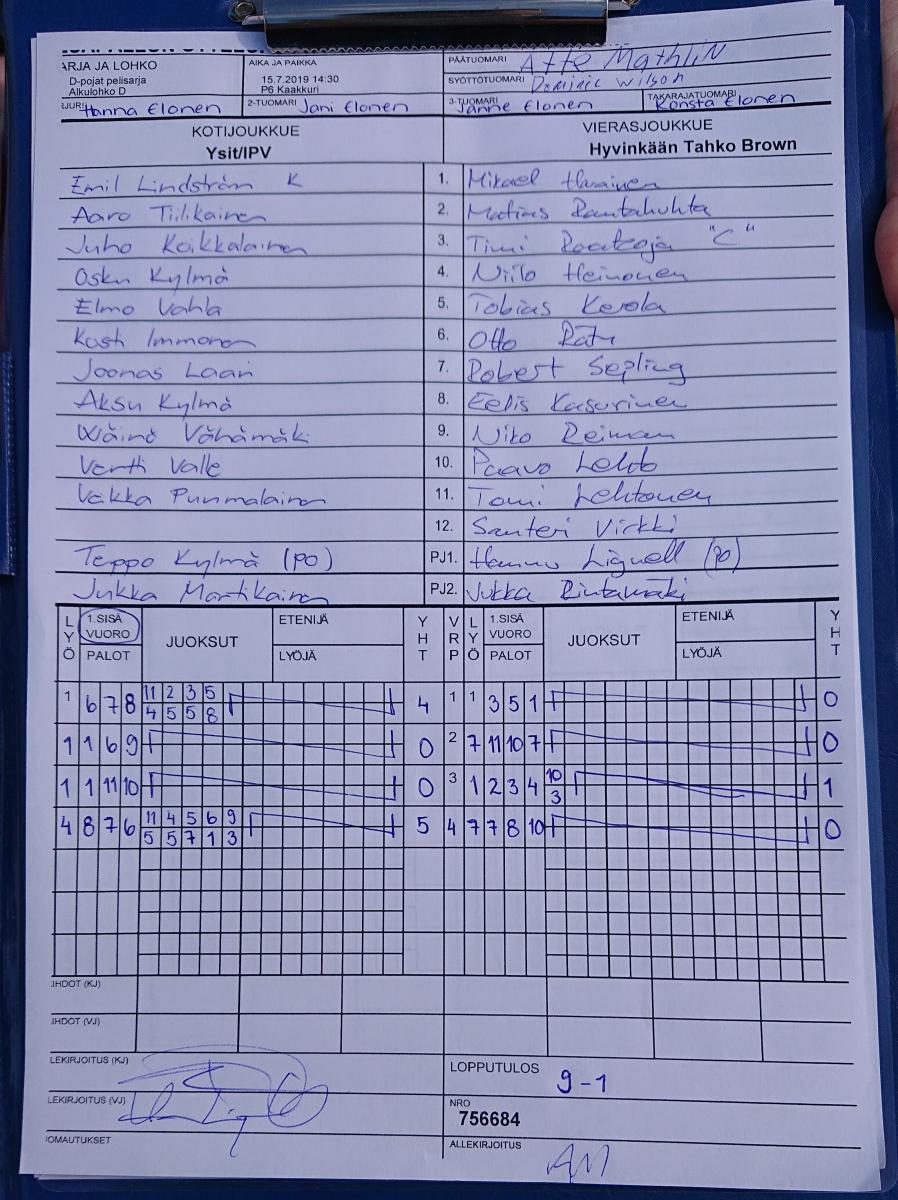 ARJA JA LOHKO
D-pojat pelisarja
Alkulohko D
AIKA JA PAIKKA
15.7.2019 14:30
P6 Kaakkuri
PÄÄTUOMARI Atte Mathlin
SYÖTTÖTUOMARI Dominic Wilson
Hanna Elonen 2-TUOMARI Jani Elonen 3-TUOMARI Janne Elonen TAKARAJATUOMARI Konsta Elonen
KOTIJOUKKUE VIERASJOUKKUE
Ysit/IPV Hyvinkään Tahko Brown
Emil Lindström K 1. Mikael
Aaro Tiilikainen 2. Matias Rantahuhta
Juho Koikkalainen 3. Timi "C"
Osku Kylmä 4. Niilo Heinonen
Elmo Vahla 5. Tobias Kerola
Immonen 6. Otto Räty
Joonas Laari 7. Robert Sepling
Aksu Kylmä 8. Eelis Kasurinen
Wäinö Vähämäki 9. Niko Reiman
Verti Valle 10. Paavo Lehto
Veikka Punmalainen 11. Tomi Lehtonen
12. Santeri Virkki
Teppo Kylmä (PO) PJ1. Hannu Lignell (PO)
Jukka Martikainen PJ2. Jukka Rintamäki
LYÖ 1.SISÄ VUORO PALOT JUOKSUT ETENIJÄ LYÖJÄ YHT VRP LYÖ 1.SISÄ VUORO PALOT JUOKSUT ETENIJÄ LYÖJÄ YHT
1 6 7 8 11 2 3 5 4 1 1 3 5 1 0
4 5 5 8
1 1 6 9 0 2 7 11 10 7 0
1 1 11 10 0 3 1 2 3 4 10 1
3
4 8 7 6 11 4 5 6 9 5 4 7 7 8 10 0
5 5 7 1 3
IHDOT (KJ)
IHDOT (VJ)
LEKIRJOITUS (KJ)
LOPPUTULOS 9-1
LEKIRJOITUS (VJ)
NRO
756684
OMAUTUKSET
ALLEKIRJOITUS AM